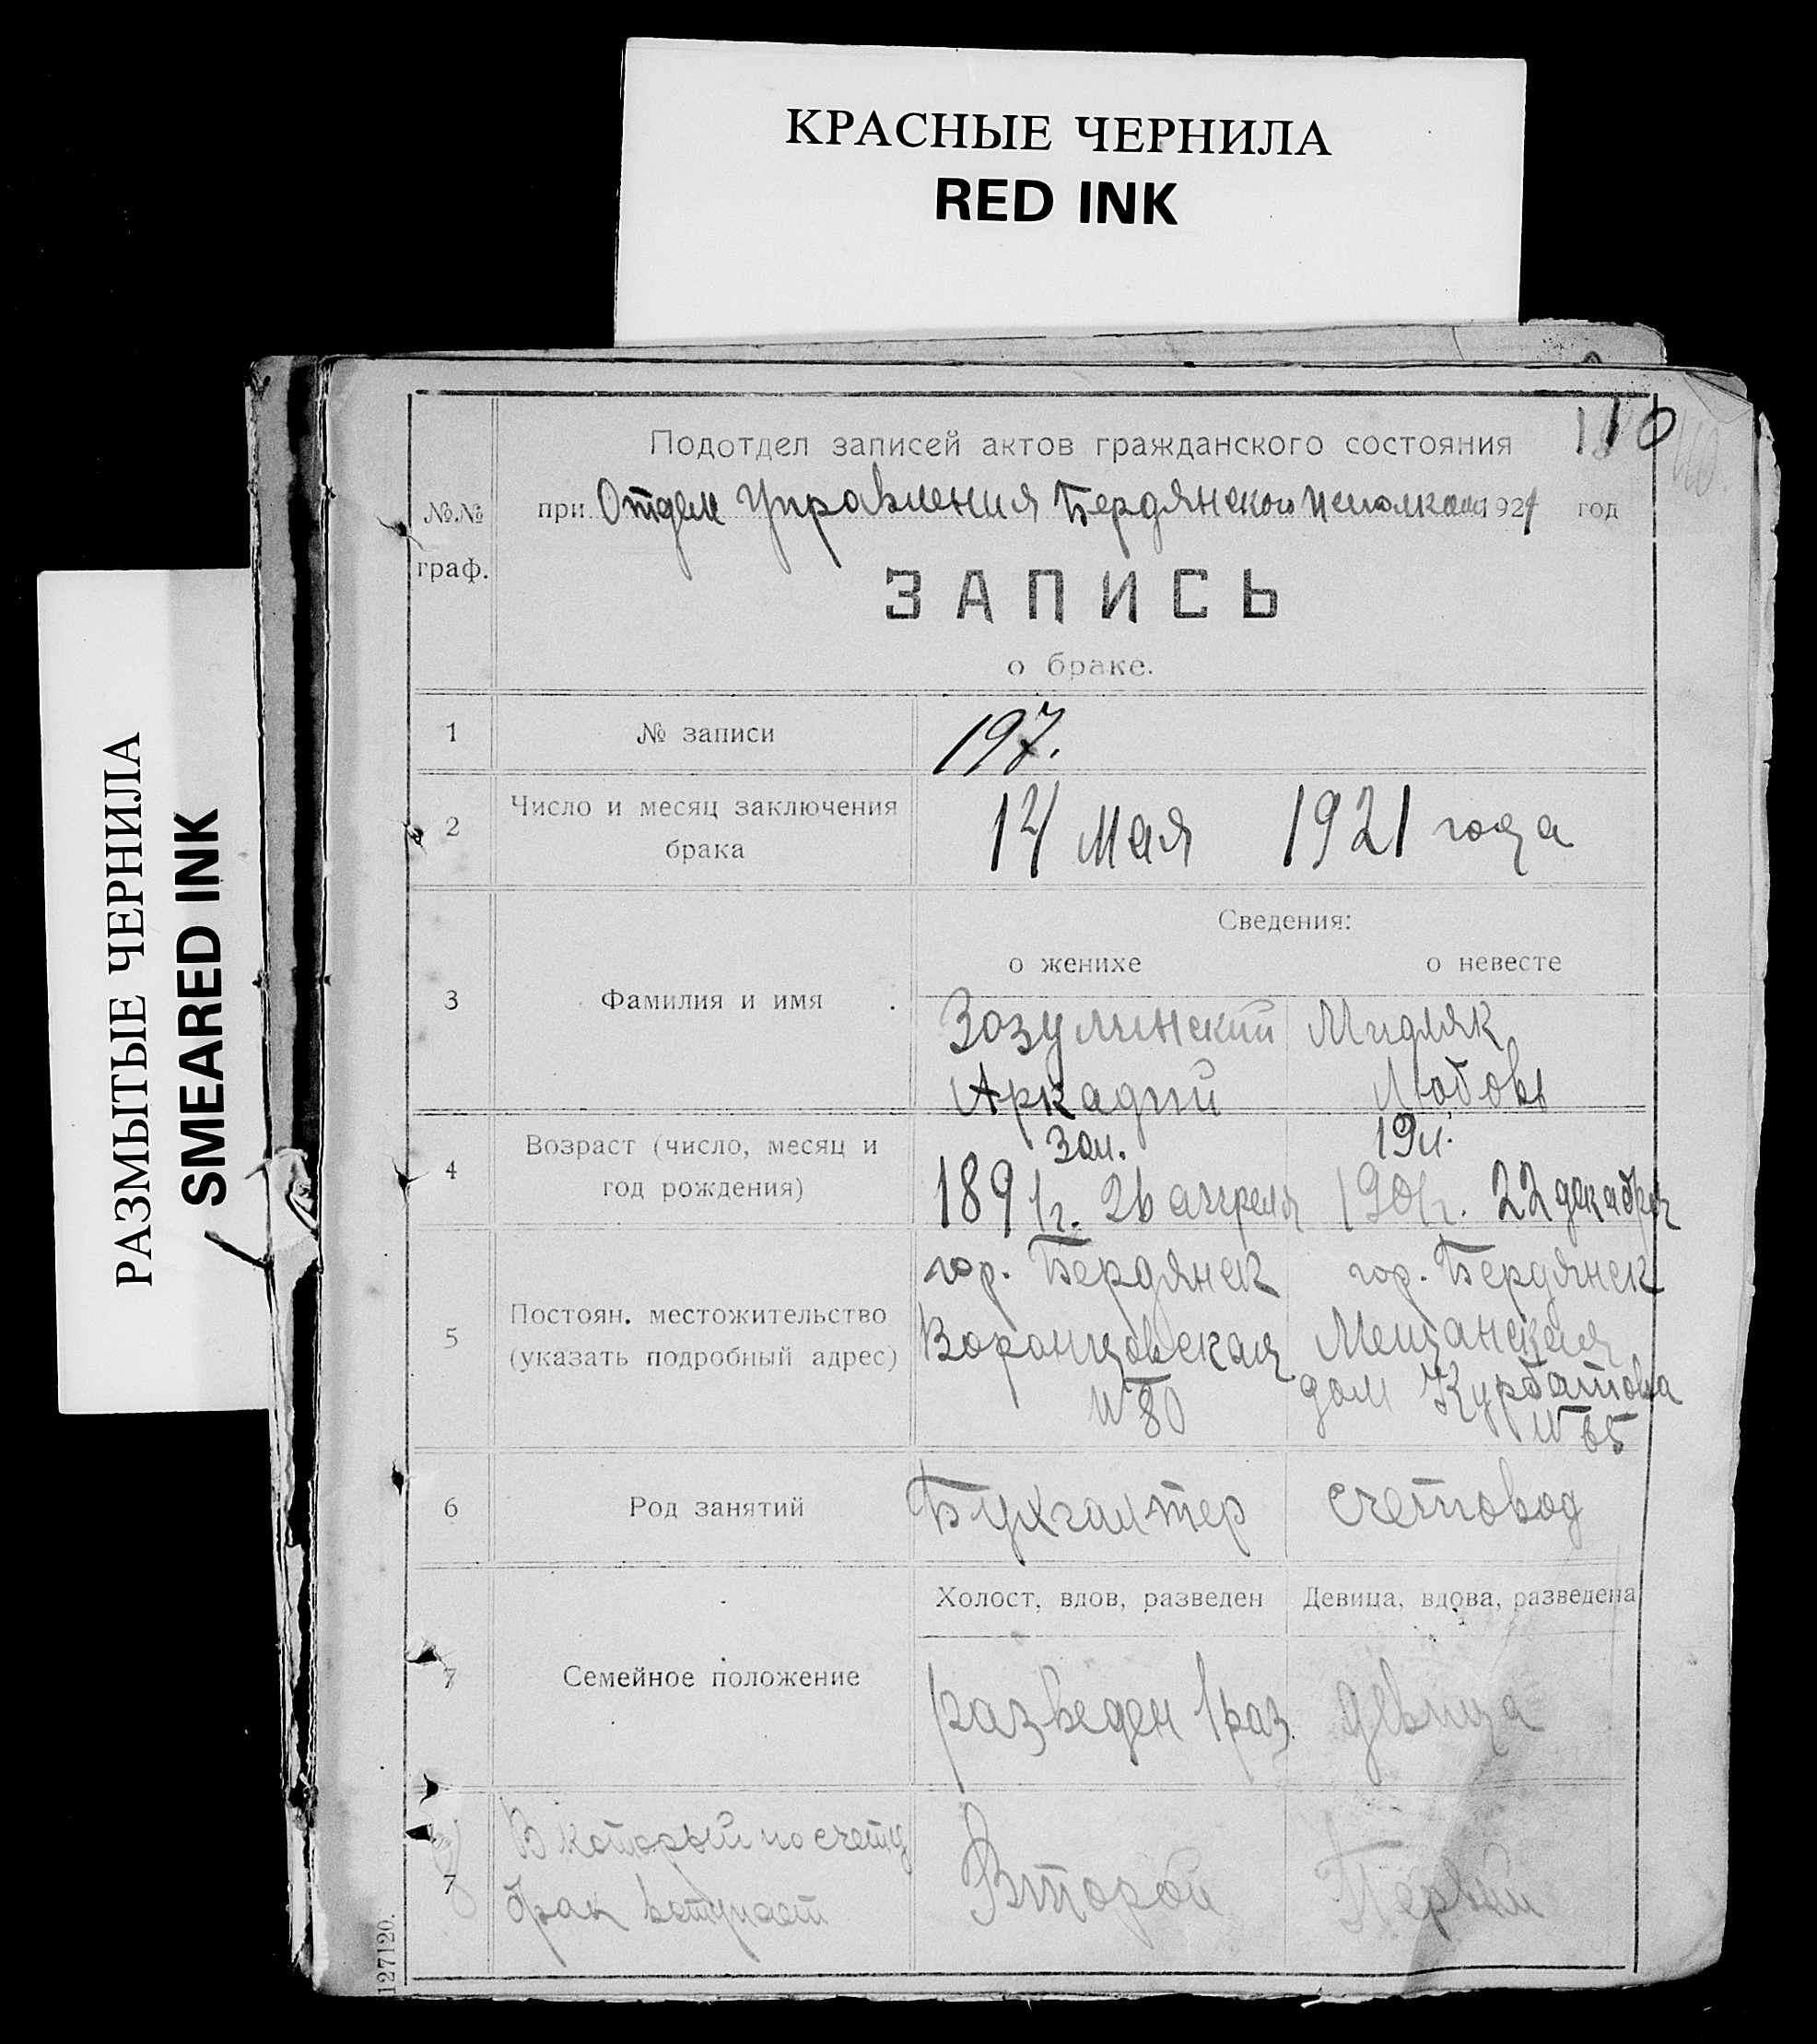 КРАСНЫЕ ЧЕРНИЛА
RED INK
РАЗМЫТЫЕ ЧЕРНИЛА
SMEARED INK
110
Подотдел записей актов гражданского состояния
№№ граф.
при Отделе Управления Бердянского Исполкома 1921 год
ЗАПИСЬ
о браке.
1 № записи 197.
2 Число и месяц заключения
брака
14 мая 1921 года
Сведения:
о женихе о невесте
3 Фамилия и имя
Зозулинский Мидляк
Аркадий Любовь
4 Возраст (число, месяц и
год рождения)
30 л. 19 л.
1891 г. 26 апреля 1901 г. 22 декабря
5 Постоян. местожительство
(указать подробный адрес)
гор. Бердянск гор. Бердянск
Воронцовская Мещанская
№ 80 дом Курбатова
№ 65
6 Род занятий Бухгалтер счетовод
Холост, вдов, разведен Девица, вдова, разведена
7 Семейное положение
разведен 1 раз. девица
7 В который по счету
брак вступает
Второй Первый
127120.